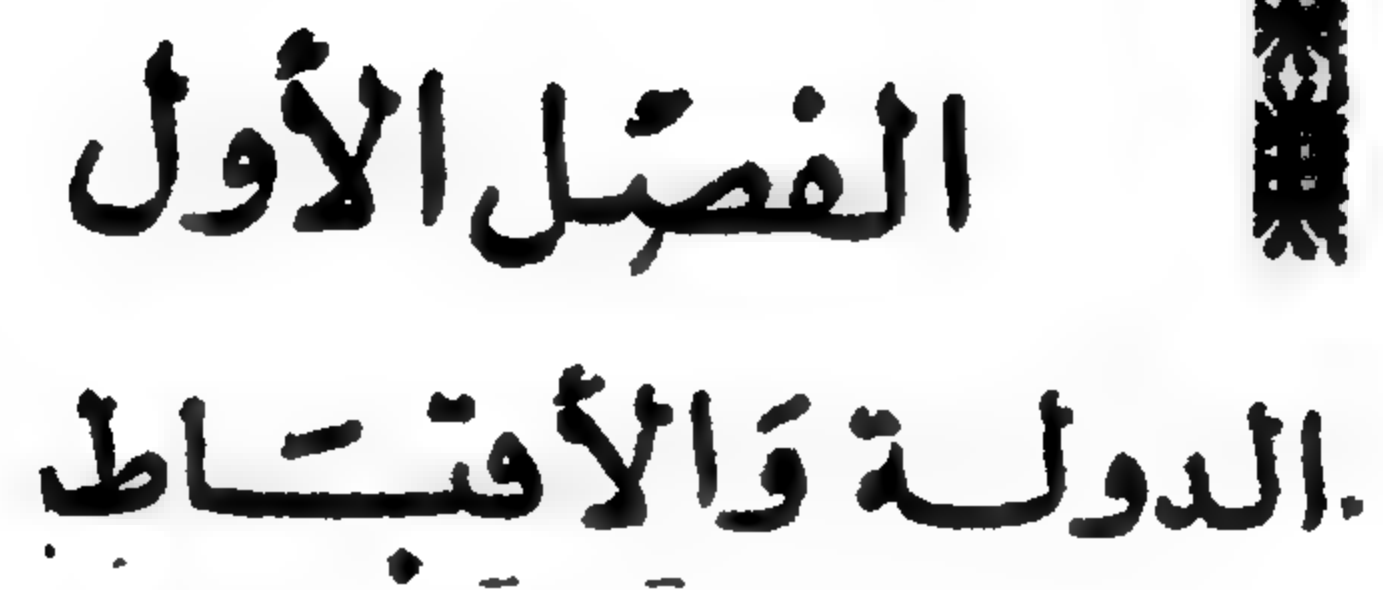 الفصل الأول
الدولة وَالأقبَاط